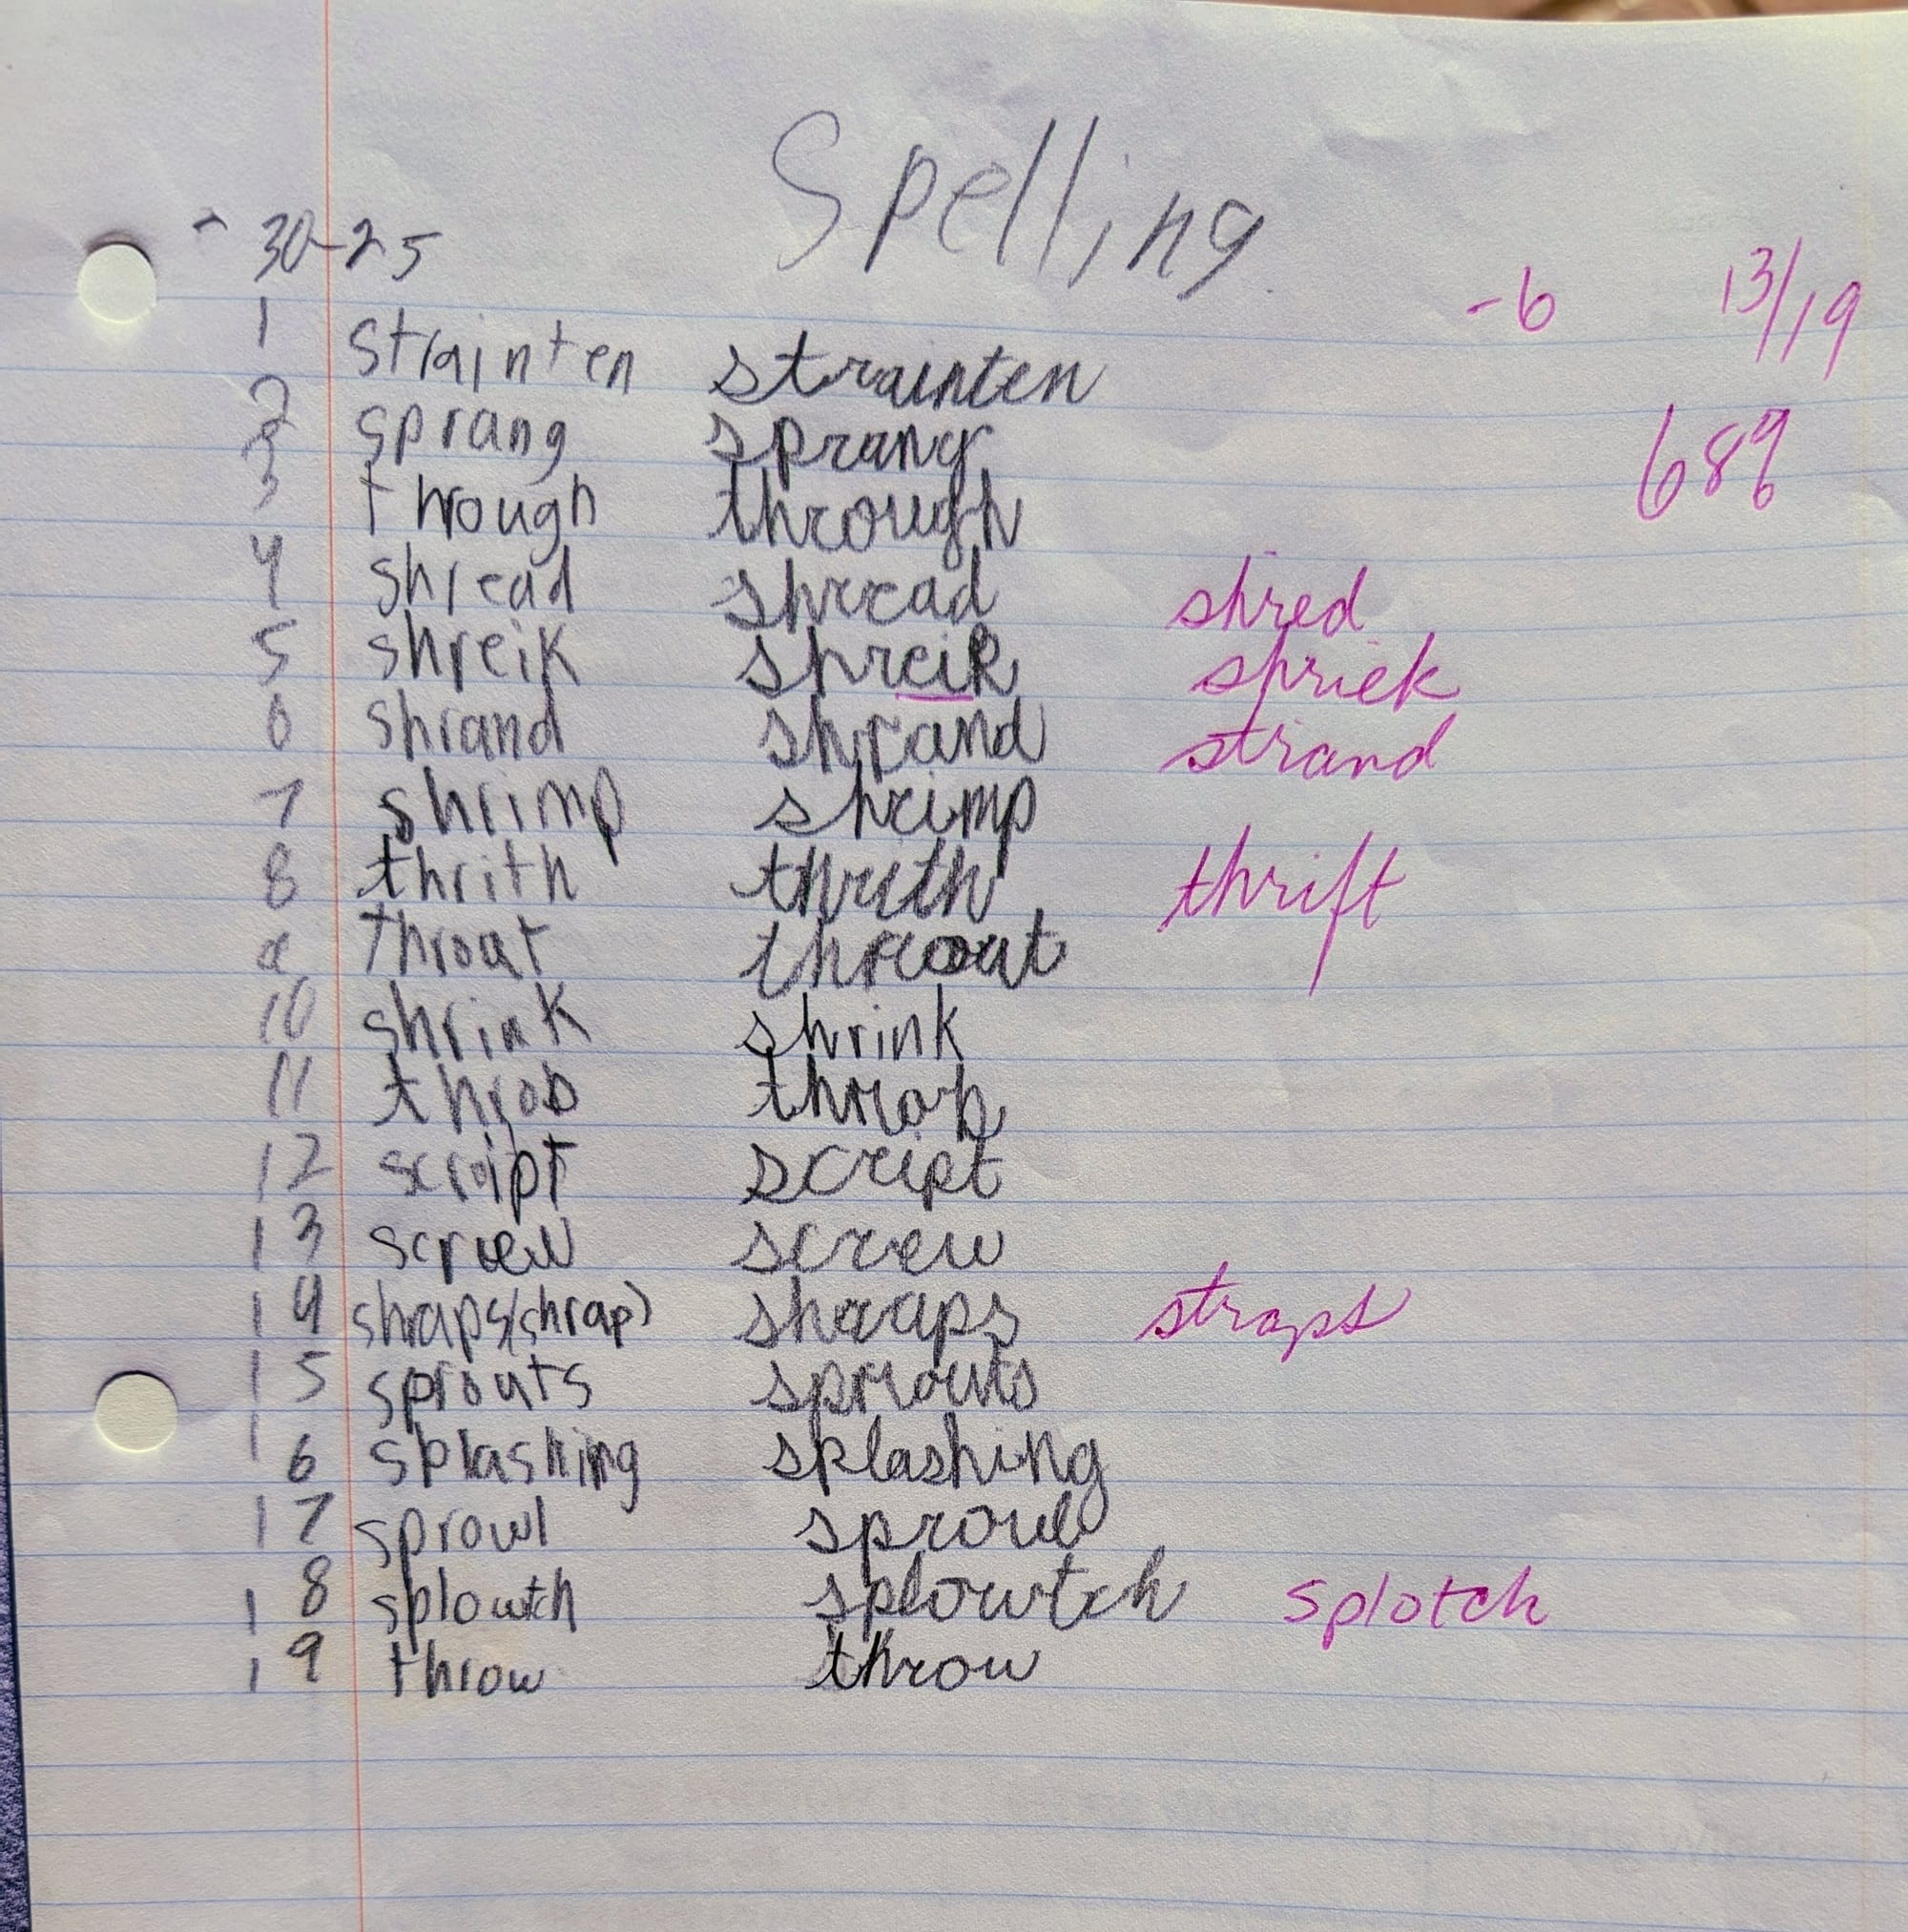 Spelling
30-25
-6 13/19
68%
1 strainten strainten
2 sprang sprang
3 through through
4 shread shread shred
5 shreik shreik shriek
6 shrand shrand strand
7 shrimp shrimp
8 thrith thrith thrift
9 throat throat
10 shrink shrink
11 throb throb
12 script script
13 screw screw
14 shraps(shrap) shraps straps
15 sprouts sprouts
16 splashing splashing
17 sprowl sprowl
18 splowtch splowtch splotch
19 throw throw